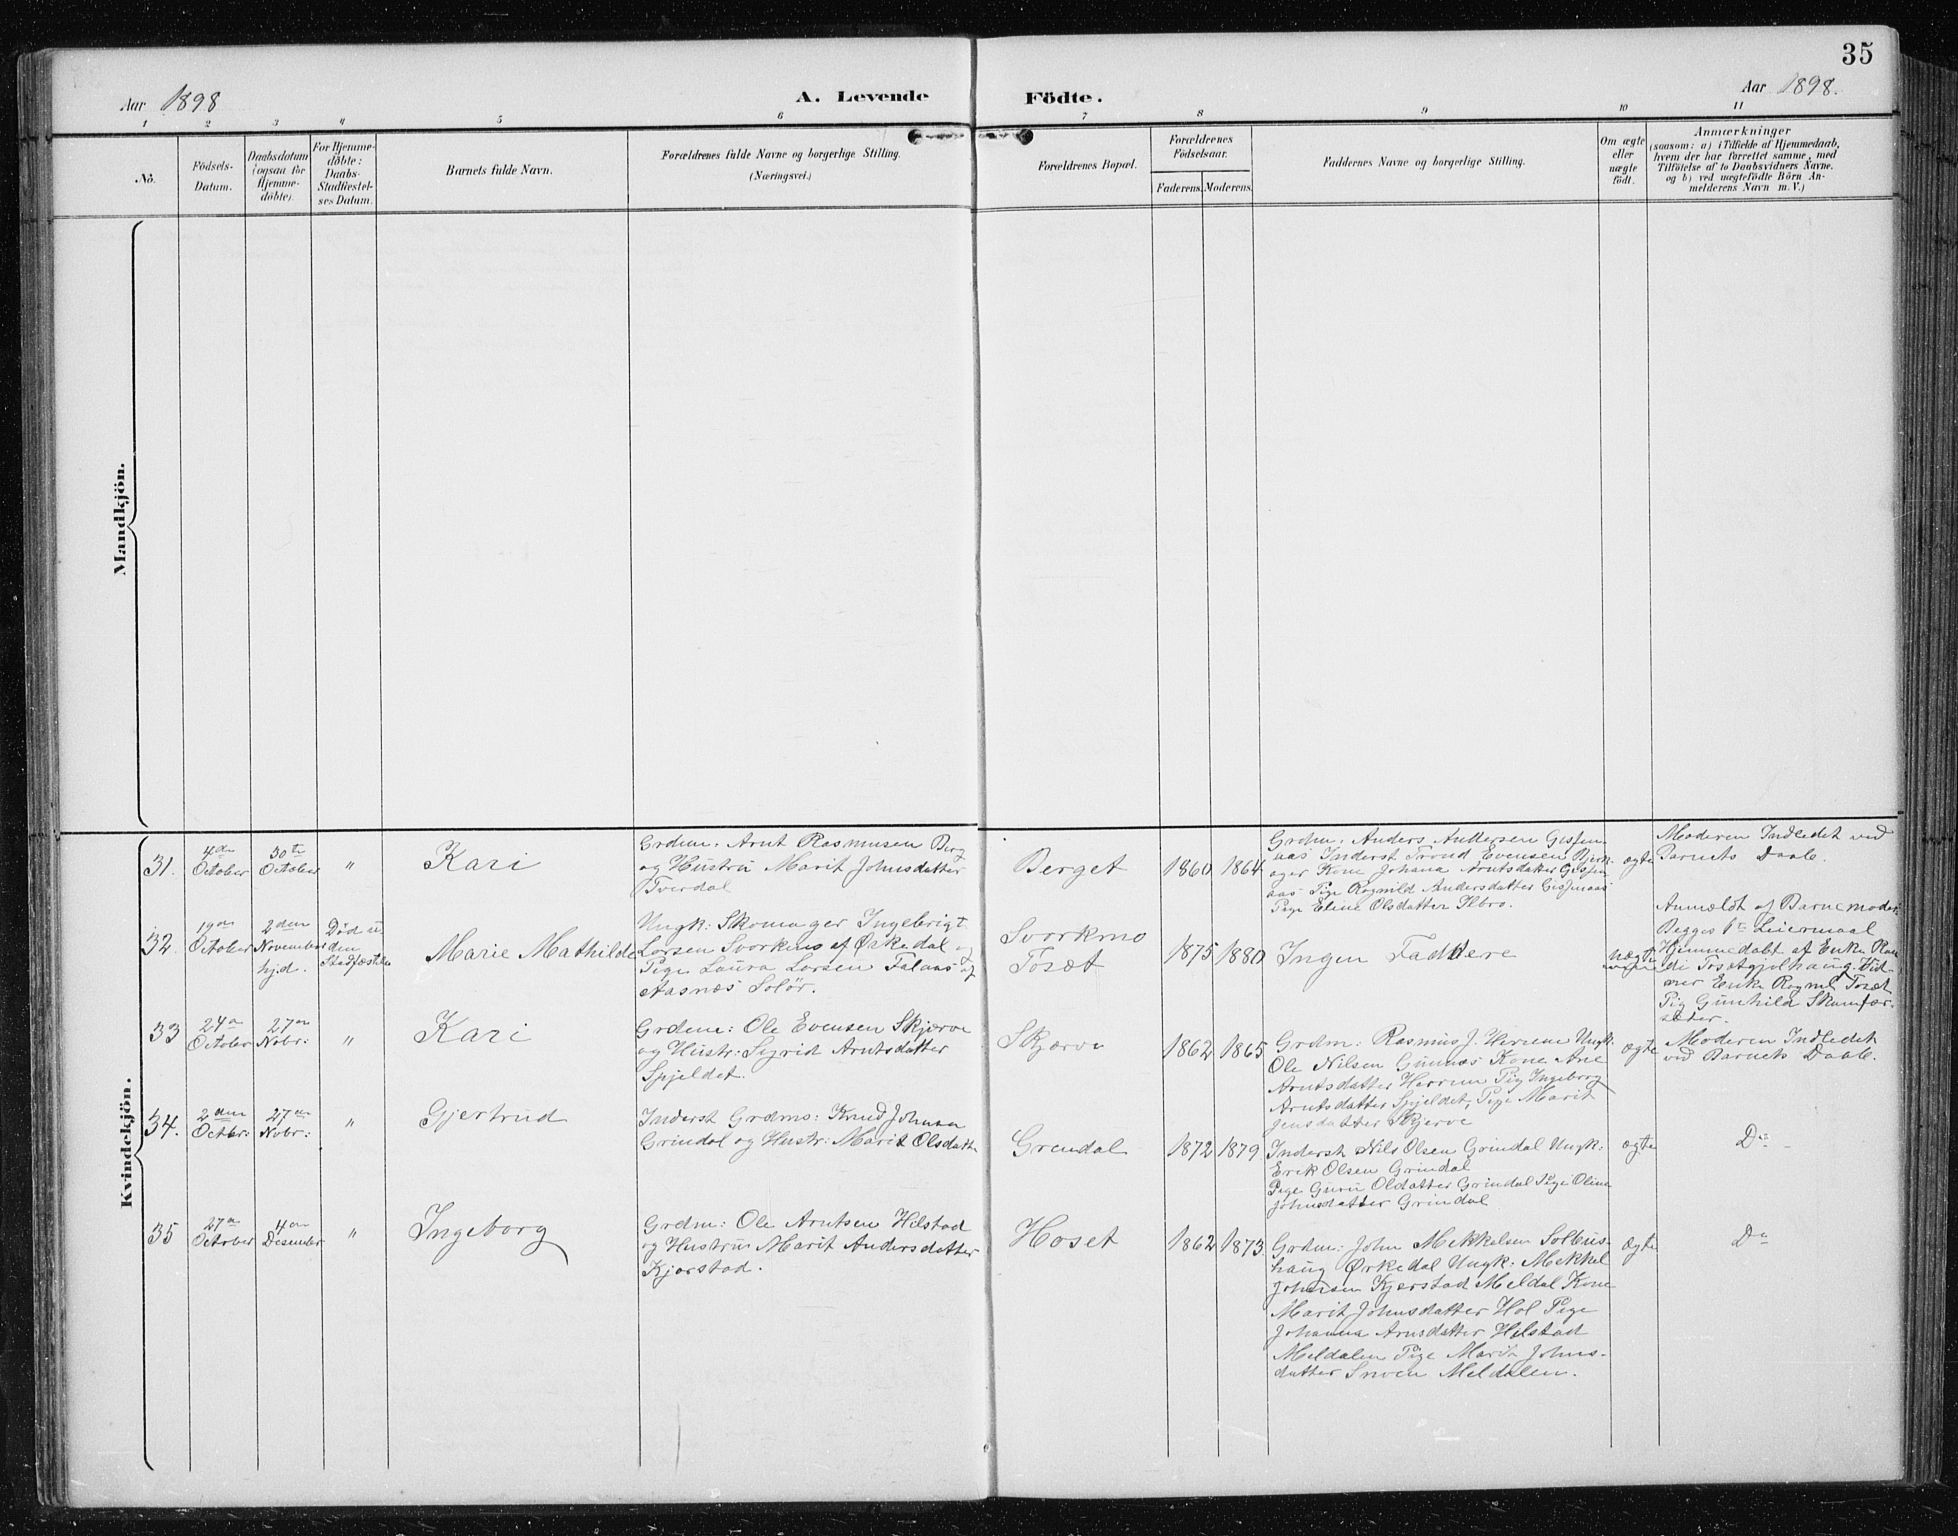 35
Aar 1898
A. Levende
Födte.
Aar 1898.
1 2 3 4 5 6 7 8 9 10 11
No.
Födsels-
Datum.
Daabsdatum
(ogsaa for
Hjemme-
döbte).
For Hjemme-
döbte:
Daabs-
Stadfæstel-
ses Datum.
Barnets fulde Navn.
Forældrenes fulde Navne og borgerlige Stilling.
(Næringsvei.)
Forældrenes Bopæl.
Forældrenes
Födselsaar.
Faderens.
Moderens.
Faddernes Navne og borgerlige Stilling.
Om ægte
eller
uægte
födt.
Anmærkninger
(saasom: a) i Tilfælde af Hjemmedaab,
hvem der har forrettet samme, med
Tilföielse af to Daabsvidners Navne.
og b) ved uægtefödte Börn An-
melderens Navn m. V.)
Mandkjön.
Kvindekjön.
31.
4de
October
30te
October
"
Kari
Grdm: Arnt Rasmusen Berg
og Hustru Marit Johnsdatter
Tverdal
Berget
1860
1864
Grdm: Anders Andersen Gisfen
aas Inderst Trond Evensen Bjerk
ager Kone Johana Arntsdatter Gisfen
aas Pige Ragnild Andersdatter Gisfenaas
Pige Eline Olsdatter Ilbro.
ægte
Moderen Indledet ved
Barnets Daab.
32.
19de
October
2den
November
hjd.
Død u
den
Stadfæstelse
Marie Mathilde
Ungk: Skomager Ingebrigt
Larsen Svorkmo af Ørkedal og
Pige Laura Larsen Falaas af
Aasnæs Solør.
Svorkmo
Tosæt
1875
1880
Ingen Faddere
uægte
Anmeldt af Barnemoder
Begges 1te Leiermaal
Hjemmedøbt af Enke Ran
di Tosætgjelhaug. Vid-
ner Enke Ragnil Tosæt
Pig Gunhild Skamfær-
sæter.
33
24de
October
27de
Nobr:
"
Kari
Grdm: Ole Evensen Skjærve
og Hustr: Sigrid Arntsdatter
Spjeldet.
Skjærve
1862
1865
Grdm: Rasmus J. Herrem Ungk.
Ole Nilsen Gunnæs Kone Ane
Arntsdatter Herrem Pig Ingeborg
Arntsdatter Spjeldet, Pige Marit
Jensdatter Skjerve
ægte
Moderen Indledet
ved Barnets Daab.
34.
2den
Octbr:
27de
Nobr:
"
Gjertrud
Inderst Grdms: Knud Johnsen
Grindal og Hustr: Marit Olsdatte
Grendal
1872
1879
Inderst Nils Olsen Grindal Ungk:
Erik Olsen Grindal
Pige Guru Oldatter Grindal Pige Oline
Johnsdatter Grindal
ægte
Do
35
27de
October
4de
Desember
"
Ingeborg
Grdm: Ole Arntsen Hilstad
og Hustru Marit Andersdatter
Kjorstad.
Hoset
1862
1873.
Grdm: John Mekkelsen Solbus-
haug Ørkedal Ungk: Mekkel
Johnsen Kjerstad Meldal Kone
Marit Johnsdatter Hol Pige
Johanna Arnsdatter Hilstad
Meldalen Pige Marit Johns-
datter Snoen Meldalen.
ægte
Do